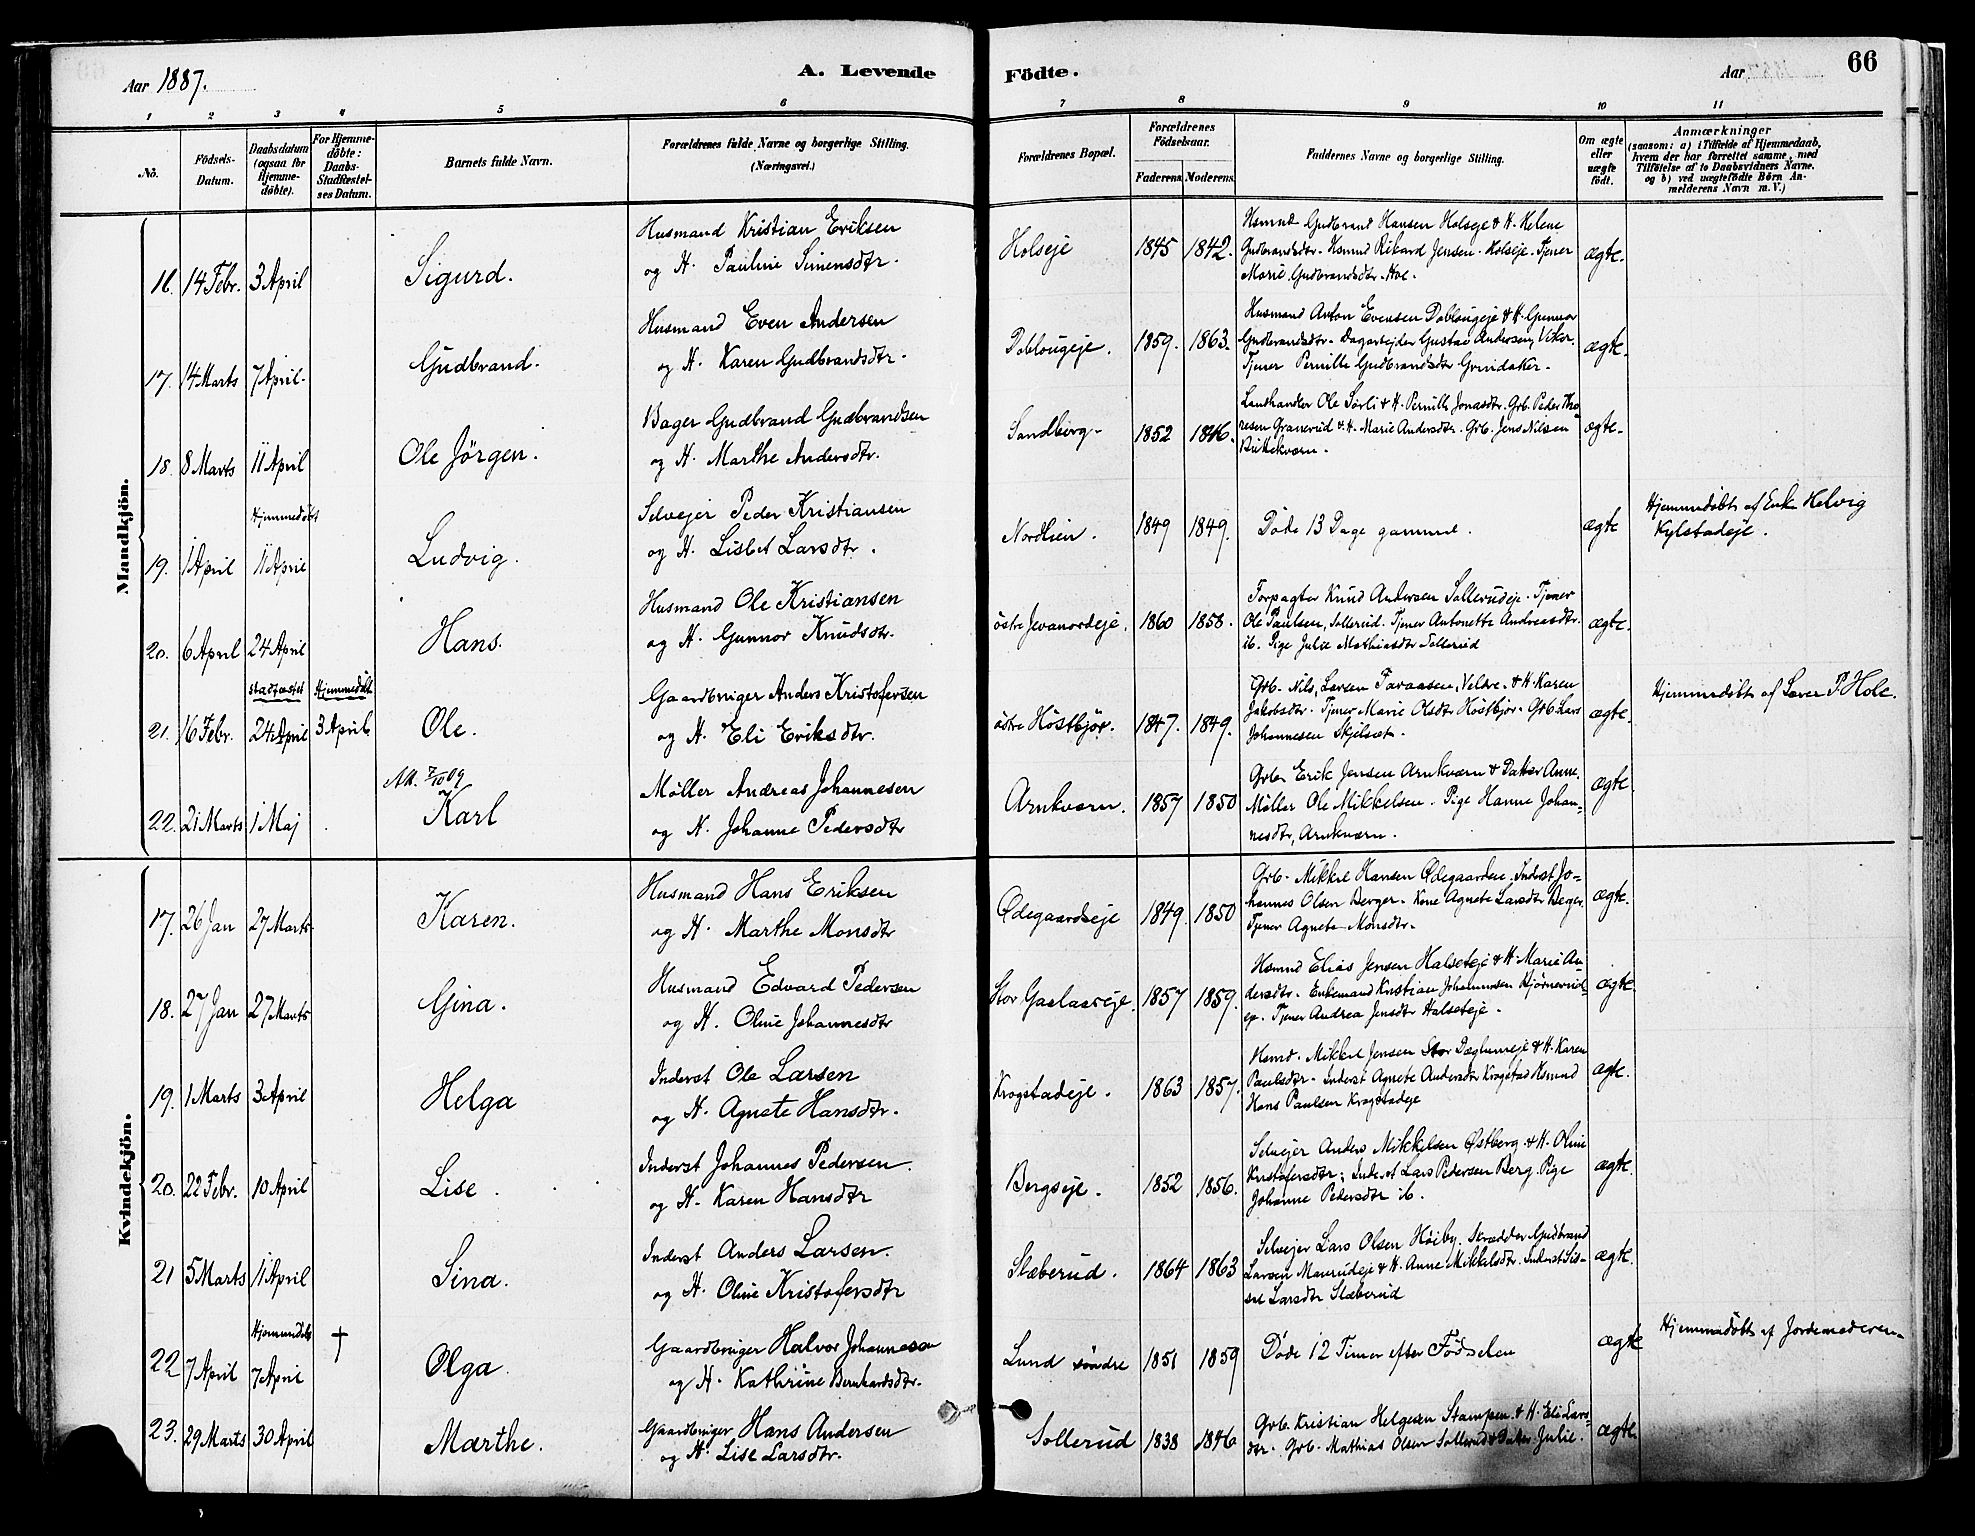 Aar 1887.
A. Levende
Födte.
Aar
66
1 2 3 4 5 6 7 8 9 10 11
No.
Födsels-
Datum.
Daabsdatum
(ogsaa for
Hjemme-
döbte).
For Hjemme-
döbte:
Daabs-
Stadfæstel-
ses Datum.
Barnets fulde Navn.
Forældrenes fulde Navne og borgerlige Stilling.
(Næringsvei.)
Forældrenes Bopæl.
Forældrenes
Födselsaar.
Faderens. Moderens.
Faddernes Navne og borgerlige Stilling.
Om ægte
eller
uægte
födt.
Anmærkninger
(saasom: a) i Tilfælde af Hjemmedaab,
hvem der har forrettet samme, med
Tilföielse af to Daabsvidners Navne.
og b) ved uægtefödte Börn An-
melderens Navn m. V.)
Mandkjön.
16. 14 Febr. 3 April Sigurd.
Husmand Kristian Eriksen
og H. Pauline Simensdtr.
Holseje 1845 1842.
Hsmnd Gudbrand Hansen Holseje & H. Helene
Gudbrandsdtr. Hsmnd Rikard Jensen Holseje. Tjener
Marie Gudbrandsdtr. Hoe.
ægte.
17. 14 Marts 7 April. Gudbrand.
Husmand Even Andersen
og H. Karen Gudbrandsdtr.
Doblougeje. 1859. 1863.
Husmand Anton Evensen Doblougeje & H. Gunnor
Gudbrandsdtr. Dagarbejder Gustav Andersen, Viker.
Tjener Pernille Gudbrandsdtr Grindaker.
ægte.
18. 8 Marts 11 April Ole Jörgen.
Bager Gudbrand Gudbrandsen
og H. Marthe Andersdtr.
Sandberg. 1852 1846.
Landhandler Ole Sørli & H. Pernille Jonasdtr. Grb. Peder Tho-
resen Granerud & H. Marie Andersdtr. Grb. Jens Nilsen
Bukkekværn.
ægte.
Hjemmedöbt
19. 1 April 11 April Ludvig.
Selvejer Peder Kristiansen
og H. Lisbet Larsdtr.
Nordlien. 1849 1849.
Döde 13 Dage gammel.
ægte
Hjemmedöbt af Enk Helvig
Kylstadeje.
20. 6 April 24 April Hans.
Husmand Ole Kristiansen
og H. Gunnor Knudsdtr.
östre Jevanordeje. 1860 1858.
Forpagter Knud Andersen Sollerudeje. Tjener
Ole Paulsen, Sollerud. Tjener Antonette Andreasdtr.
ib. Pige Julie Mathiasdtr Sollerud
ægte.
stadfæstet Hjemmedöbt
21. 16 Febr. 24 April 3 April Ole.
Gaardbruger Anders Kristofersen
og H. Eli Eriksdtr.
östre Höstbjör. 1847. 1849.
Grb. Nils Larsen Favaasen, Veldre. & H. Karen
Jakobsdtr. Tjener Marie Olsdtr Höstbjör. Grb Lars
Johannesen Skjelset.
ægte.
Hjemmedöbt af Lærer P. Hole.
22. 21 Marts 1 Maj Karl
Møller Andreas Johannesen
og H. Johanne Pedersdtr
Arnkværn. 1857 1850
Grb. Erik Jensen Arnkværn & Datter Anne.
Møller Ole Mikkelsen. Pige Hanne Johan-
nesdtr, Arnkværn.
ægte.
Kvindekjön.
17. 26 Jan 27 Marts Karen.
Husmand Hans Eriksen
og H. Marthe Monsdtr
Ödegaardseje 1849. 1850
Grb. Mikkel Hansen Ödegaarden. Inderst Jo-
hannes Olsen Berger. Kone Agnete Larsdtr Berger.
Tjener Agnete Monsdtr.
ægte.
18. 27 Jan 27 Marts Gina.
Husmand Edvard Pedersen
og H. Oline Johannesdtr
Stor Gaalaaseje. 1857 1859.
Hsmnd Elias Jensen Halseteje & H. Marie An-
dersdtr. Enkemand Kristian Johannesen Kjörnerud-
ej. Tjener Andrea Jensdtr Halseteje.
ægte.
19. 1 Marts 3 April Helga
Inderst Ole Larsen
og H. Agnete Hansdtr.
Krogstadeje. 1863 1857.
Hsmd. Mikkel Jensen Stor Dæglumeje & H. Karen
Paulsdtr. Inderst Agnete Andersdtr Krogstad Hsmnd
Hans Paulsen Krogstadeje
ægte.
20. 22 Febr. 10 April Lise.
Inderst Johannes Pedersen.
og H. Karen Hansdtr
Bergseje. 1852 1856.
Selvejer Anders Mikkelsen Östberg. & H. Oline
Kristofersdtr; Inderst Lars Pedersen Berg. Pige
Johanne Pedersdtr ib.
ægte.
21 5 Marts 11 April Sina.
Inderst Anders Larsen.
og H. Oline Kristofersdtr
Slæberud. 1864 1863
Selvejer Lars Olsen Höiby. Skrædder Gudbrand
Larsen Maurudeje & H. Anne Mikkelsdtr. Inderst Sis-
sel Larsdtr Slæberud
ægte.
Hjemmedöbt †
22 7 April 7 April Olga.
Gaardbruger Halvor Johannesen
og H. Kathrine Bernhardsdtr.
Lund söndre 1851 1859
Döde 12 Timer efter Födselen
ægte
Hjemmedöbt af Jordemoderen
23. 29 Marts 30 April Marthe.
Gaardbruger Hans Andersen
og H. Lise Larsdtr.
Sollerud 1838 1846
Grb. Kristian Helgesen Stampen. & H. Eli Lars-
dtr. Grb. Mathias Olsen Sollerud & Datter Julie.
ægte.